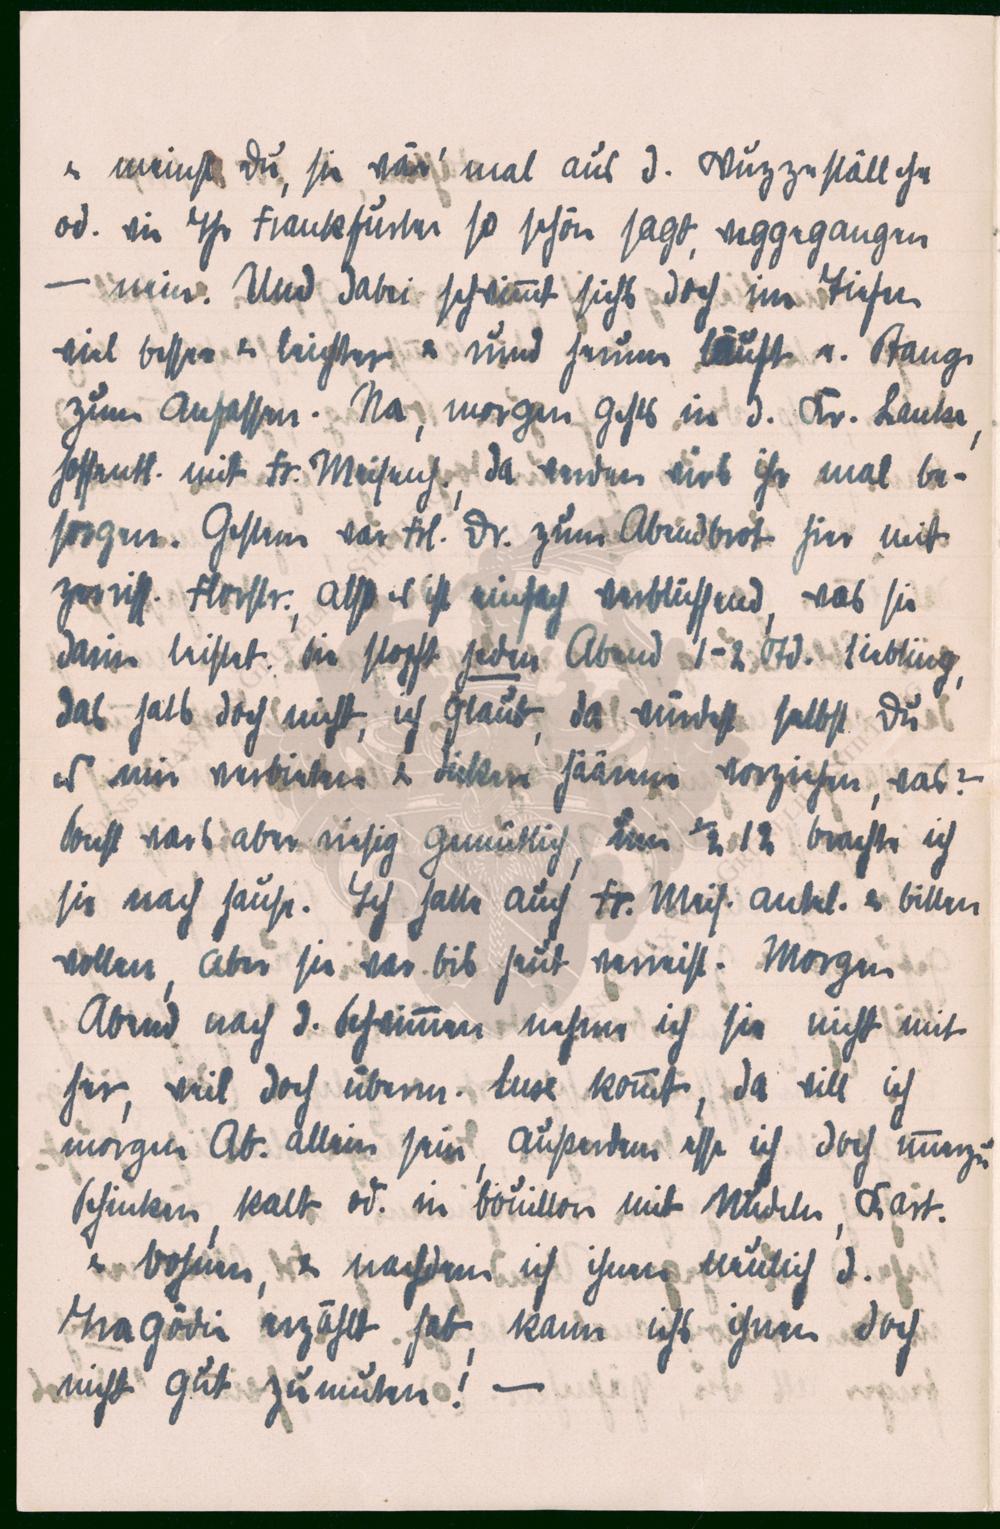 & meinst Du, sie wär' mal aus d. Wuzzeställche
od. wie Ihr Frankfurter so schön sagt, weggegangen
— nein. Und dabei schwim̄t sichs doch im Tiefen
viel besser & leichter & rund herum läuft e. Stange
zum Anfassen. Na, morgen gehts in d. Kr. Lanke,
hoffentl. mit Fr. Meisench., da werden wirs ihr mal be-
sorgen. Gestern war Frl. Dr. zum Abendbrot hier mit
zerriss. Florstr., also es ist einfach verblüffend, was sie
darin leistet. Sie stopft jeden Abend 1-2 Std. Liebling,
das hats doch nicht, ich glaub, da würdest selbst Du
es mir verbieten & dicken Häärene vorziehen, was?
Sonst wars aber riesig gemütlich, um ½ 12 brachte ich
sie nach Hause. Ich hatte auch Fr. Meis. antel. & bitten
wollen, aber sie war bis heut verreist. Morgen
Abend nach d. Schwim̄en nehme ich sie nicht mit
her, weil doch überm. Luxe kom̄t, da will ich
morgen Ab. allein sein, außerdem esse ich doch im̄erzu
Schinken, kalt od. in Bouillon mit Nudeln, Kart.
& Bohnen, & nachdem ich ihnen neulich d.
Tragödie erzählt hab, kann ichs ihnen doch
nicht gut zumuten! —